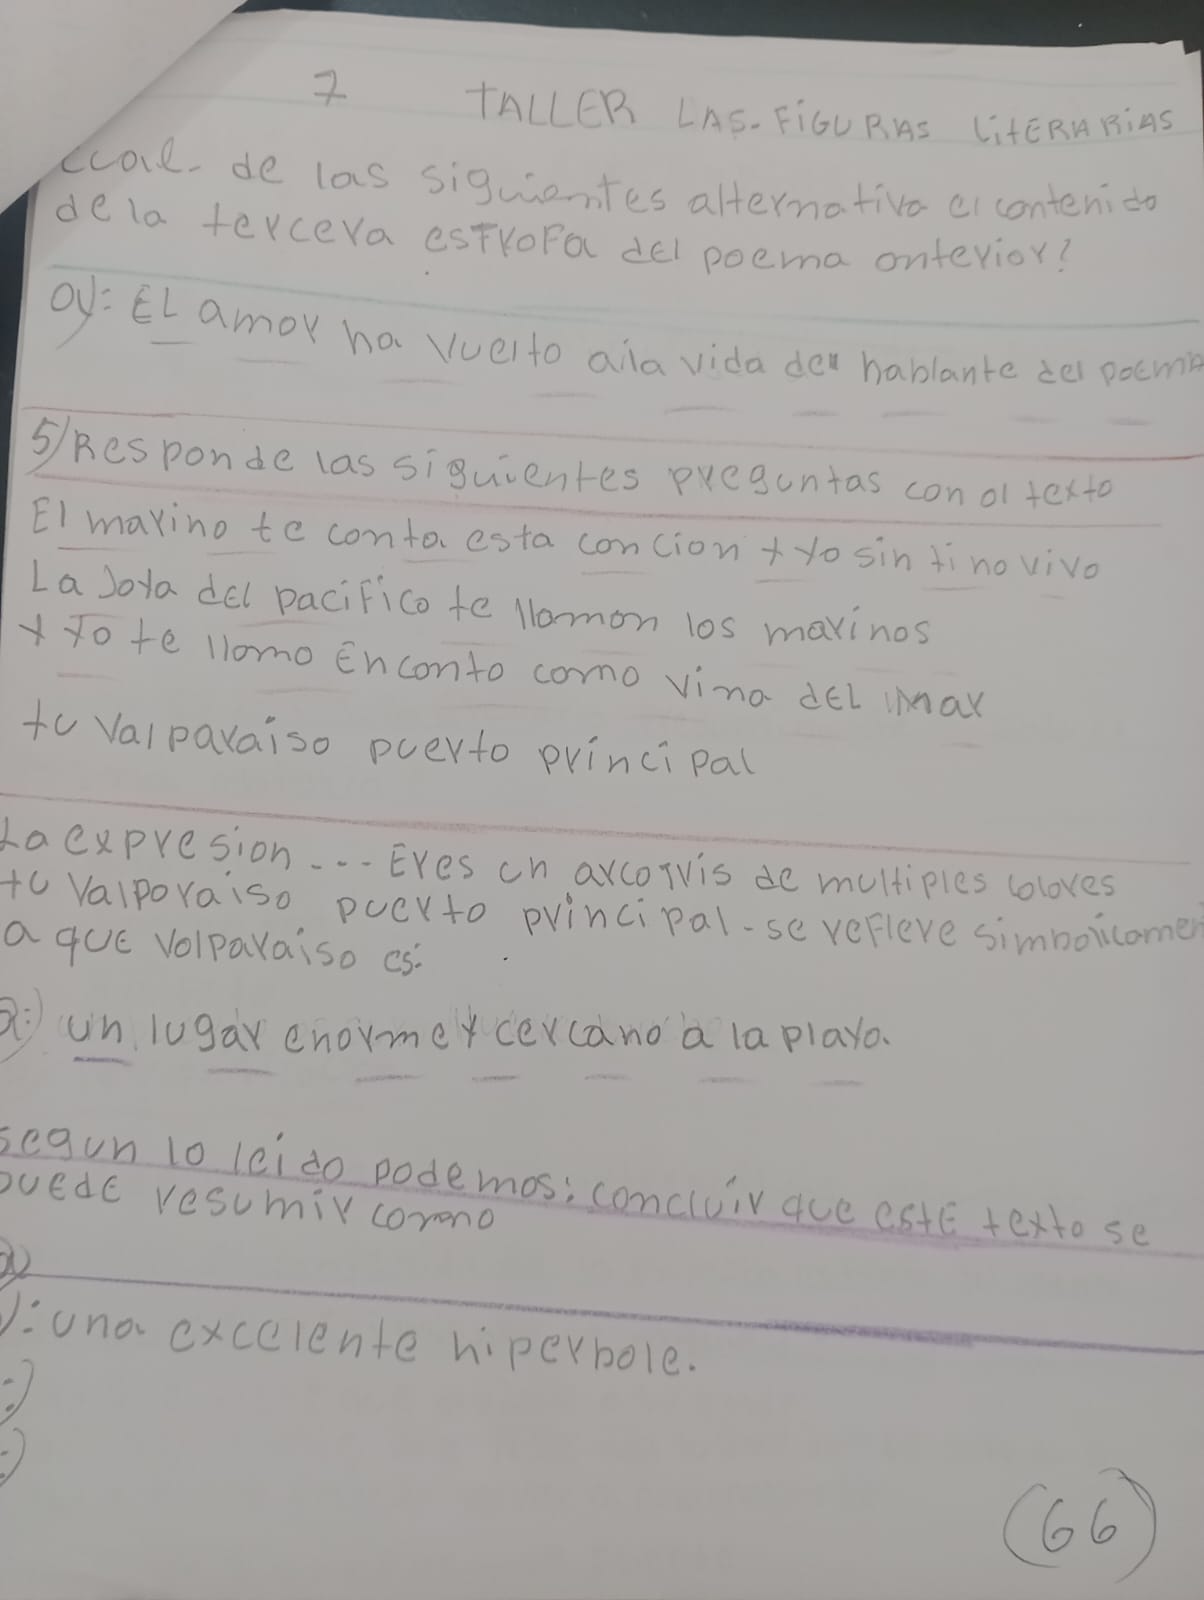 7 TALLER LAS-FiGURAS LitERARiAS
cual- de las siguientes alternativa el contenido
de la tercera esTroFa del poema anterior?
a): EL amor ha vuelto a la vida del hablante del poema
5) Responde las siguientes preguntas con el texto
El marino te canta esta cancion y yo sin ti no vivo
La Joya del paciFico te llaman los marinos
y yo te llamo Encanto como vina del Mar
tu Valparaiso puerto principal
La expresion --- Eres un arcoIris de multiples colores
tu Valparaiso puerto principal - se refiere simbolicamen
a que Valparaiso es:
a:) un lugar enorme y cercano a la playa.
segun lo leido podemos: concluir que este texto se
puede resumir como
): una excelente hiperbole.
:)
:)
(66)